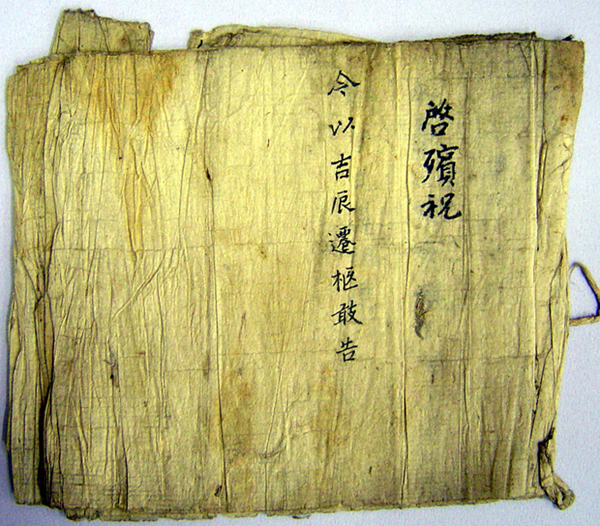 啓殯祝
今以吉辰遷柩敢告